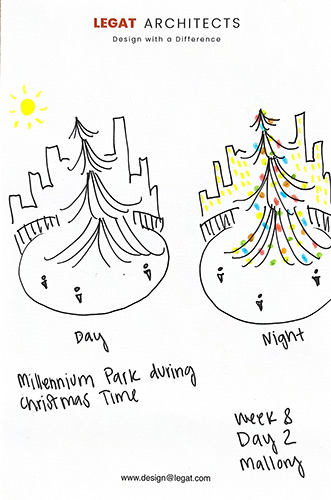 LEGAT ARCHITECTS
Design with a Difference
Day
Night
Millennium Park during
Christmas Time
Week 8
Day 2
Mallory
www.design@legat.com